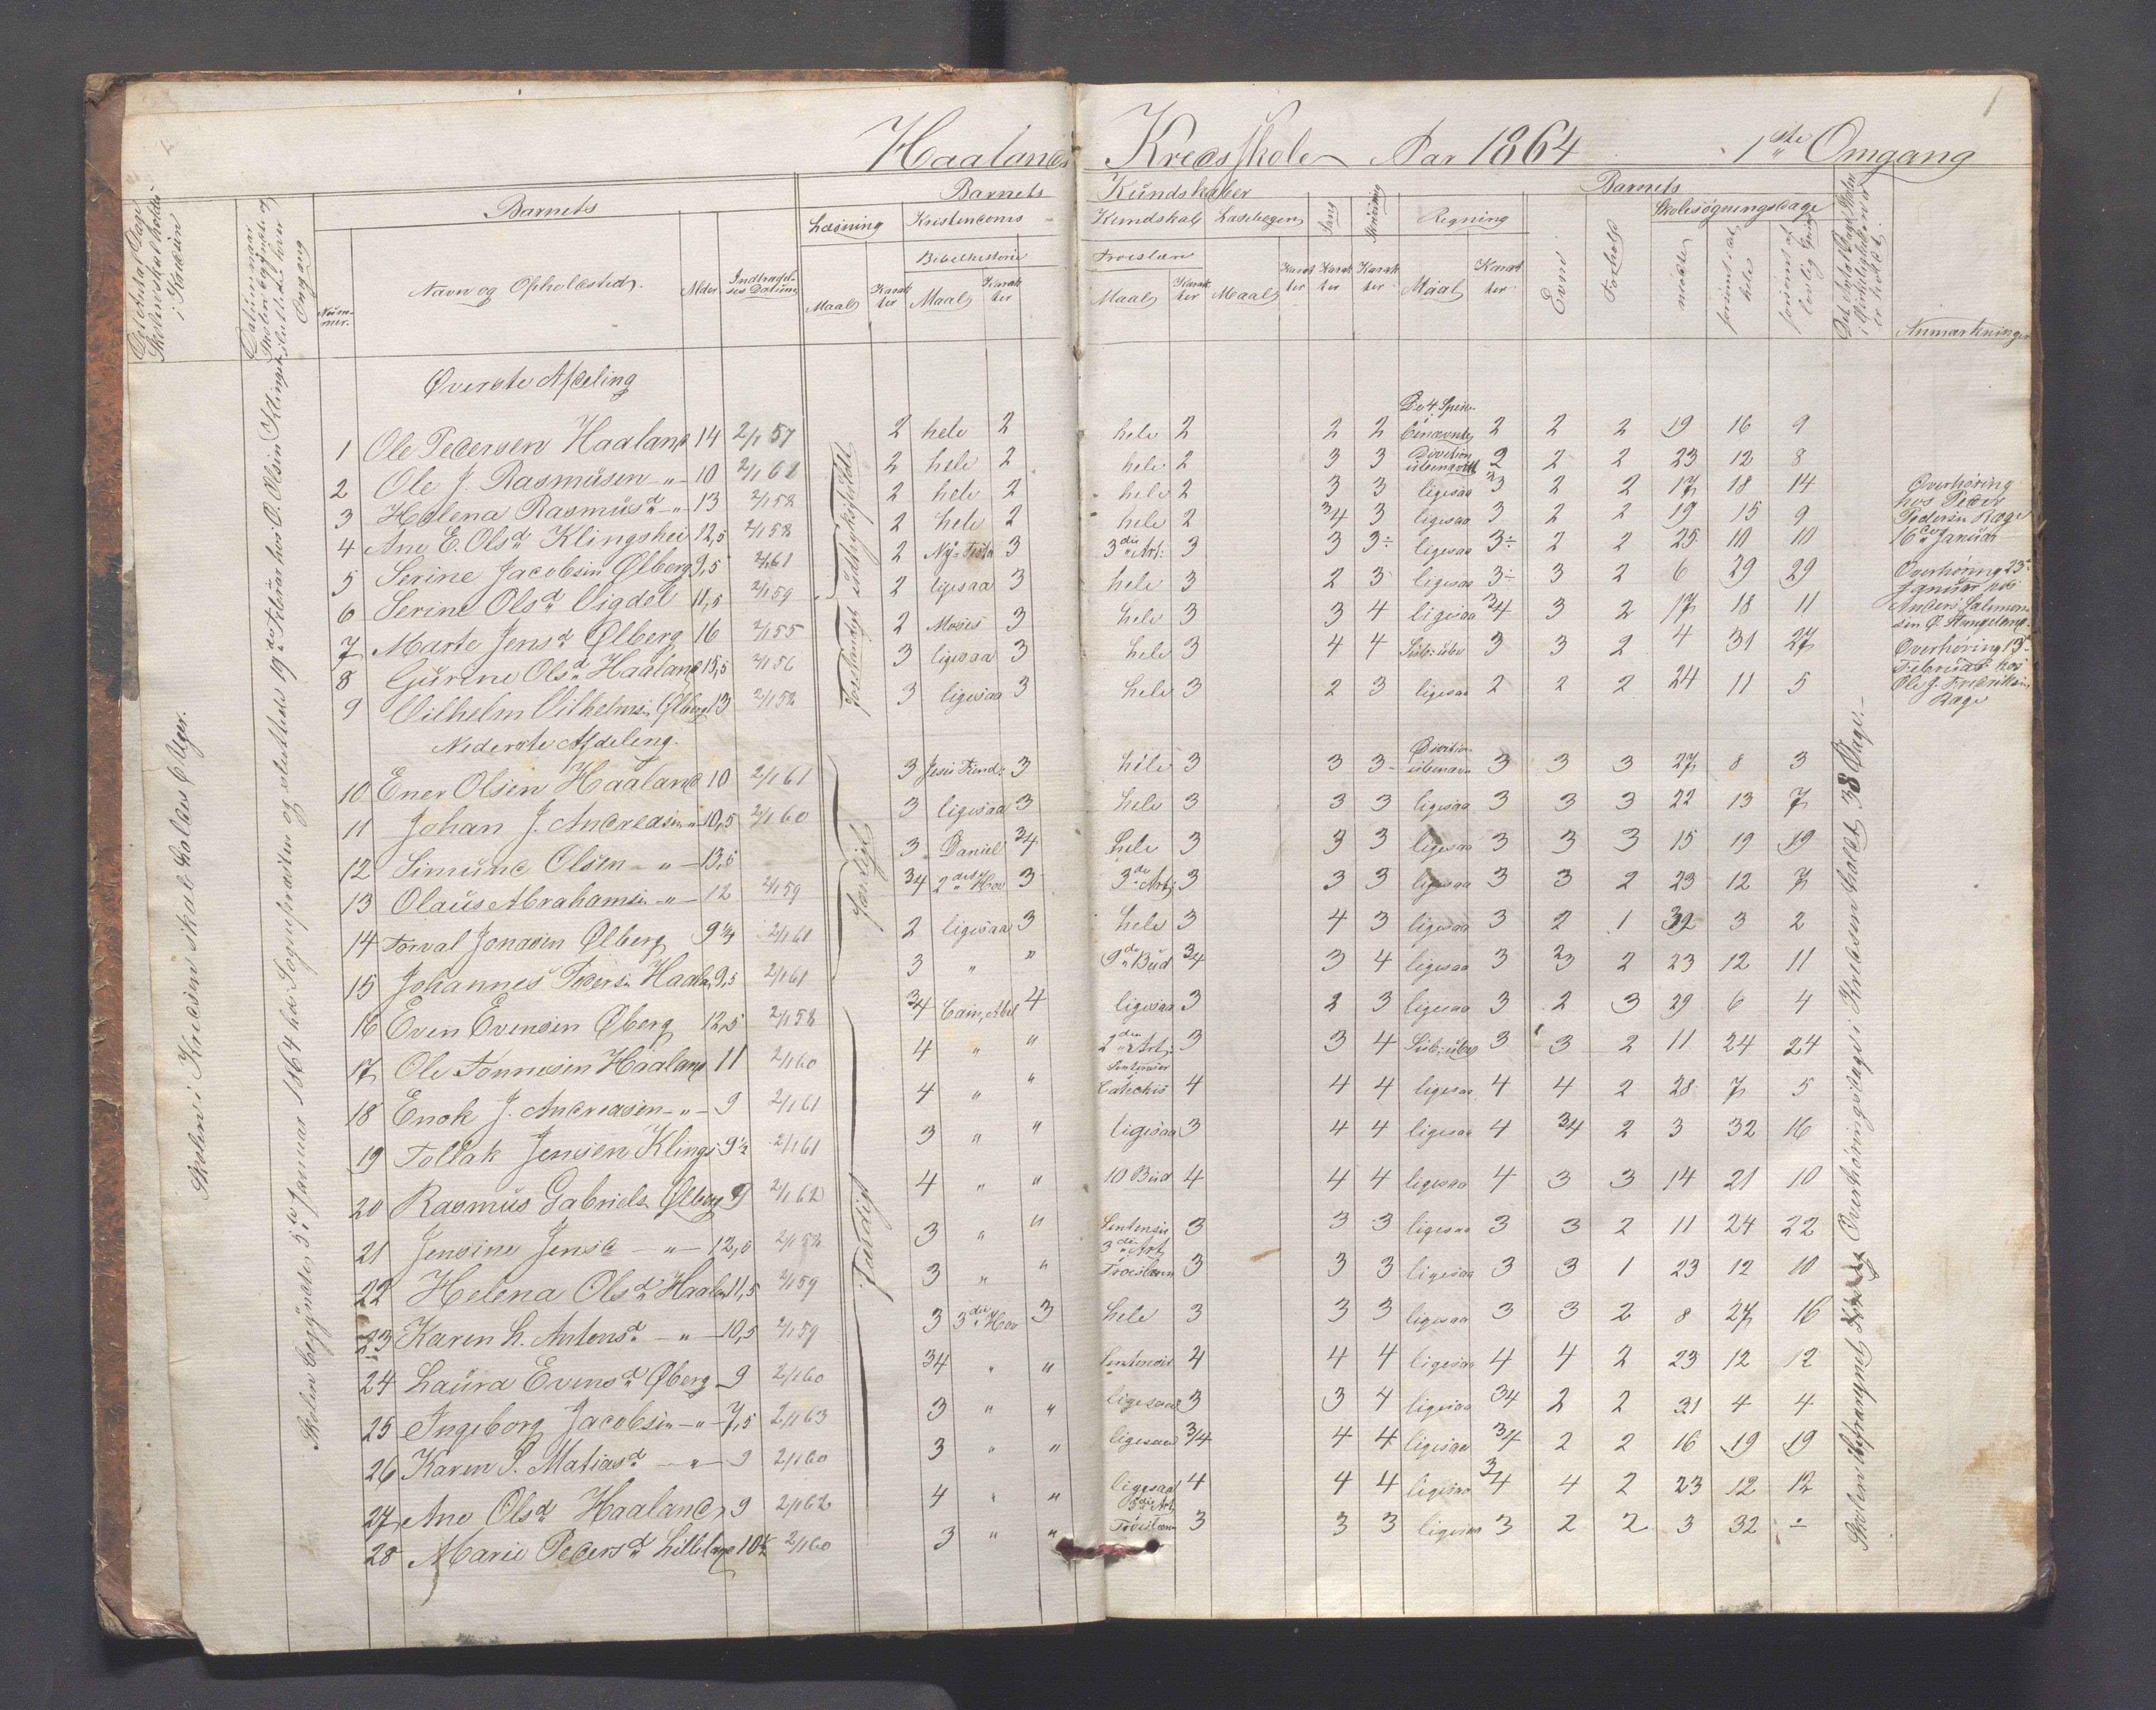 Haalands Kredsskole Aar 1864 1ste Omgang
1
Det Antal Dage Skolen skal holdes i Kredsen
Datum naar Skolen begyndte og sluttede hver Omgang
Barnets
Nummer.
Navn og Opholdsted.
Alder
Indtrædelses Datum
Barnets Kundskaber
Læsning
Maal
Karakter
Kristendoms Kundskab
Bibelhistorie
Maal
Karakter
Troeslære
Maal
Karakter
Læsebogen
Maal
Karakter
Sang
Karakter
Skrivning
Karakter
Regning
Maal
Karakter
Barnets
Evne
Forhold
Skolesøgningsdage
mødte
forsømt at hele
forsømt af lovlig Grund
Det Antal Dage Skolen i Virkeligheden er holdt.
Anmærkninger
Skolen i Kredsen skal holdes 6 Uger.
Skolen begyndte 5te Januar 1864 hos Sognepræsten og sluttede 19de Februar hos O. Olsen Klingshei
Øverste Afdeling
1 Ole Pedersen Haaland 14 2/1 57 2 hele 2 hele 2 2 2 De 4 Spec. i benævnte 2 2 2 19 16 9
2 Ole J. Rasmusen -"- 10 2/1 62 2 hele 2 hele 2 3 3 Division i ubenævnt 2 2 2 23 12 8
3 Helena Rasmusd -"- 13 2/1 58 2 hele 2 hele 2 3 3 ligesaa 3 2 2 17 18 14
4 Ane E. Olsd Klingshei 12,5 2/1 58 2 hele 2 hele 2 34 3 ligesaa 3 2 2 19 15 9
5 Serine Jacobsen Ølberg 9,5 2/1 61 2 Ny-Testa 3 3die Art: 3 3 3÷ ligesaa 3÷ 2 2 25 10 10
6 Serine Olsd Vigdel 11,5 2/1 59 2 ligesaa 3 hele 3 2 3 ligesaa 3÷ 3 2 6 29 29
7 Marte Jensd Ølberg 16 2/1 55 2 Moses 3 hele 3 3 4 ligesaa 34 3 2 17 18 11
8 Gurine Olsd Haaland 15,5 2/1 56 3 ligesaa 3 hele 3 4 4 Sub: ube 3 3 2 4 31 27
9 Vilhelm Vilhelmsen Ølberg 13 2/1 58 3 ligesaa 3 hele 3 2 3 ligesaa 2 2 2 24 11 5
Forstandigt udtryksfuldt
Overhøring hos Peder Pedersen Rege 16de Januar
Overhøring 23de Januar hos Anders Salomonsen Ø. Stangeland.
Overhøring 13de Februar hos Ole G. Fredriksen Rage
Nederste Afdeling.
10 Ener Olsen Haaland 10 2/1 61 3 Jesus Fend: 3 hele 3 3 3 Division i ubenævn 3 3 3 27 8 3
11 Johan J. Andreasen -"- 10,5 2/1 60 3 ligesaa 3 hele 3 3 3 ligesaa 3 3 3 22 13 7
12 Simund Olsen -"- 13,5 3 Daniel 34 hele 3 3 3 ligesaa 3 3 3 15 19 19
13 Olaus Abrahamsen -"- 12 2/1 59 34 2det Hov 3 3die Art: 3 3 3 ligesaa 3 3 2 23 12 7
14 Torval Jonasen Ølberg 9 1/2 2/1 61 2 ligesaa 3 hele 3 4 3 ligesaa 3 2 1 32 3 2
15 Johannes Peders. Haalan 9,5 2/1 61 3 " " 9de Bud 34 3 4 ligesaa 3 23 2 23 12 11
16 Even Evensen Øberg 12,5 2/1 58 34 Cain, Abel 4 ligesaa 3 2 3 ligesaa 3 2 3 29 6 4
17 Ole Tønnesen Haaland 11 2/1 60 4 " " 2den Art: 3 3 4 Sub: ube 3 3 2 11 24 24
18 Enok J. Andreasen -"- 9 2/1 61 4 " " Sentenser Catechis 4 4 4 ligesaa 4 4 2 28 7 5
19 Tollak Jensen Klings 9 1/2 2/1 61 3 " " ligesaa 3 4 4 ligesaa 4 34 2 3 32 16
20 Rasmus Gabriels. Ølberg 9 2/1 62 4 " " 10 Bud 4 4 4 ligesaa 4 3 3 14 21 10
21 Jensine Jensd -"- 12,5 2/1 58 3 " " Sentenser 3 3 3 ligesaa 3 3 2 11 24 22
22 Helena Olsd Haalan 11,5 2/1 59 3 " " 3die Art Troeslæren 3 3 3 ligesaa 3 3 1 23 12 10
23 Karen L. Antonsd -"- 10,5 2/1 59 3 3die Hov 3 hele 3 3 3 ligesaa 3 3 2 8 27 16
24 Laura Evensd Øberg 9 2/1 60 34 " " Sentenser 4 4 4 ligesaa 4 4 2 23 12 12
25 Ingeborg Jacobsen -"- 7,5 2/1 63 3 " " ligesaa 3 3 4 ligesaa 34 2 2 31 4 4
26 Karen S. Matiasd -"- 9 2/1 60 3 " " ligesaa 3/4 4 4 ligesaa 34 2 2 16 19 19
27 Ane Olsd Haaland 9 2/1 62 4 " " ligesaa 4 4 4 ligesaa 34 4 2 23 12 12
28 Marie Pedersd Lilleland 10 1/2 2/1 60 3 " " 3die Art Troeslæren 3 3 3 ligesaa 3 2 2 3 32 ÷
færdigt
Overhøringsdage i Kredsen holdt 38 Dage.